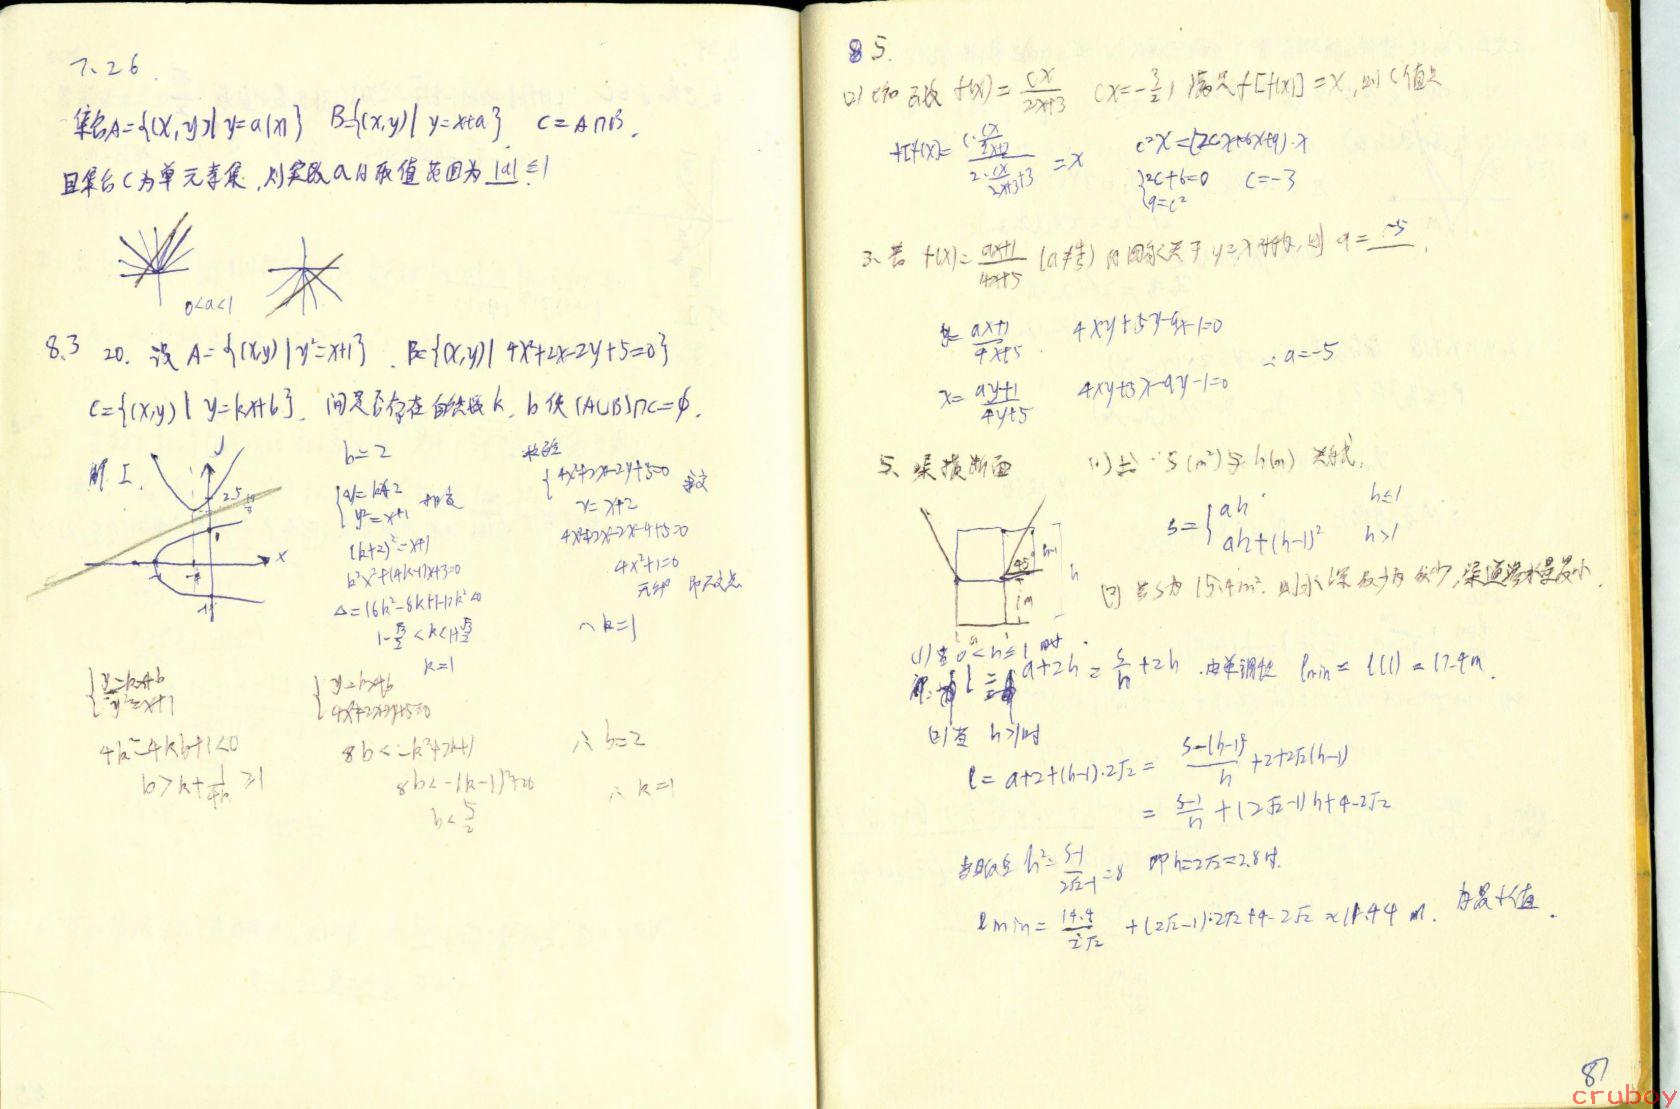 7.26
集合A={(x,y)| y=a|x|} B={(x,y)| y=x+a} C=A∩B,
且集合C为单元素集,则实数a的取值范围为 |a|≤1
0<a<1
8.3 20. 设 A={(x,y)|y²=x+1}, B={(x,y)| 4x²+2x-2y+5=0}
C={(x,y)| y=kx+b}, 问是否存在自然数k, b使(A∪B)∩C=φ.
解I.
y
2.5
x
b=2
y²=x+1
(k+2)²=x+1
k²x²+(4k-1)x+3=0
Δ=16k²-8k+1-12k²<0
k=1
4x²+2x-2y+5=0
y=x+2
4x²+2x-2x-4+5=0
4x²+1=0
∴k=1
y=kx+b
y²=x+1
4k²-4kb+1<0
b>k+1/4k≥1
y=kx+b
4x²+2x-2y+5=0
8b<-(k-1)²+20
b<5/2
∴b=2
∴k=1
85.
(2) 已知函数 f(x)=cx/(2x+3) (x=-3/2) 满足f[f(x)]=x,则C值是
=x
c²x=(2cx+6x+9)·x
2c+6=0 c=-3
9=c²
3、若 f(x)=(ax+1)/(4x+5) (a≠4/5) 的图象关于y=x对称,则 a=-5.
y=(ax+1)/(4x+5) 4xy+5y-ax-1=0
∴a=-5
x=(ay+1)/(4y+5) 4xy+5x-ay-1=0
5、渠横断面 (1)求 S(m²)与h(m)关系式,
S={ah h≤1
ah+(h-1)² h>1
45°
h
1m
a
(2) 若S为15.4m². 则水深及为多少,渠道渗水量最小.
(1)当0<h≤1时
a+2h=S/h+2h.由单调性 lmin=l(1)=17.4m.
(2)当 h>1时
l=a+2+(h-1)·2√2=(S-(h-1)²)/h+2+2√2(h-1)
=(S-1)/h+(2√2-1)h+4-2√2
当且仅当h²=(S-1)/(2√2-1)=8 即h=2√2=2.8时.
lmin=14.4/2√2+(2√2-1)·2√2+4-2√2≈11.44 m. 为最小值.
87
cruboy